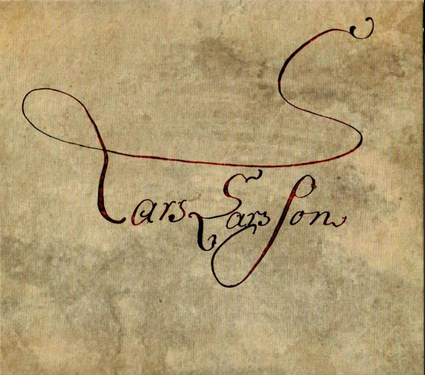 Lars Larsson